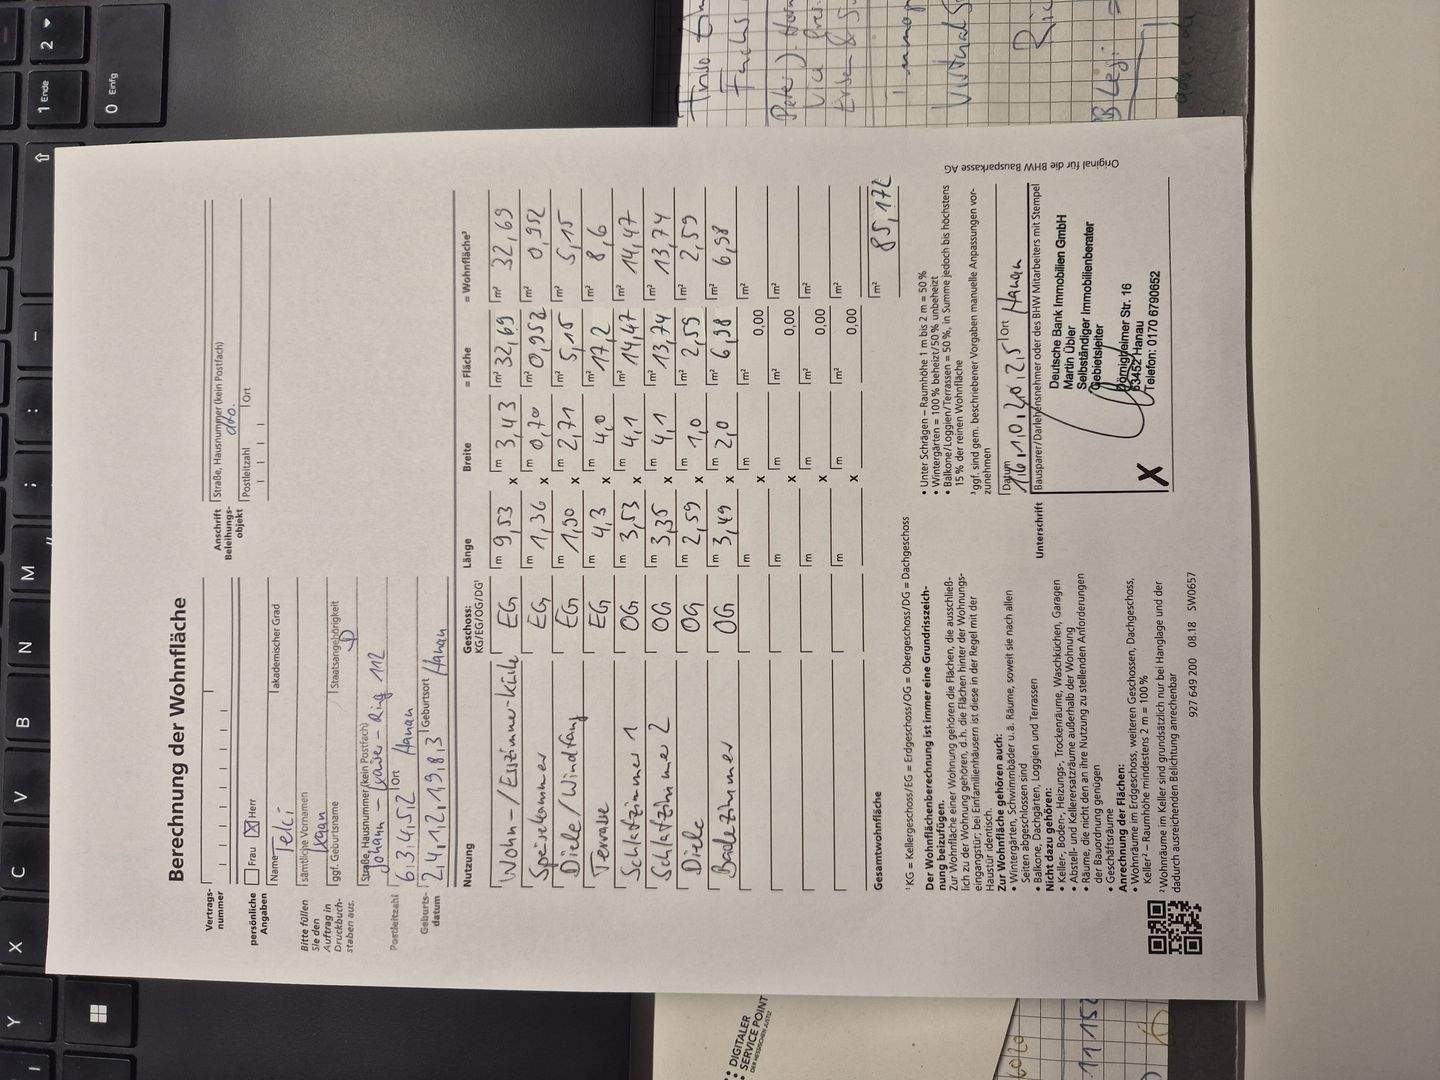 Berechnung der Wohnfläche
Vertrags-
nummer
persönliche
Angaben
Frau
Herr
Name
Teki
akademischer Grad
Bitte füllen
Sie den
Auftrag in
Druckbuch-
staben aus.
sämtliche Vornamen
ggf. Geburtsname
Staatsangehörigkeit
D
Straße, Hausnummer (kein Postfach)
Johann - - Ring 112
Postleitzahl
63452
Ort
Hanau
Geburts-
datum
24.12.1983
Geburtsort
Hanau
Anschrift
Beleihungs-
objekt
Straße, Hausnummer (kein Postfach)
Postleitzahl
Ort
Nutzung Geschoss: Länge Breite = Fläche = Wohnfläche³
KG/EG/OG/DG¹
Wohn-/Esszimmer-Küche EG m 9,53 x m 3,43 m² 32,69 m² 32,69
Speisekammer EG m 1,36 x m 0,70 m² 0,952 m² 0,952
Diele/Windfang EG m 1,90 x m 2,71 m² 5,15 m² 5,15
Terasse EG m 4,3 x m 4,0 m² 17,2 m² 8,6
Schlafzimmer 1 OG m 3,53 x m 4,1 m² 14,47 m² 14,47
Schlafzimmer 2 OG m 3,35 x m 4,1 m² 13,74 m² 13,74
Diele OG m 2,59 x m 1,0 m² 2,59 m² 2,59
Badezimmer OG m 3,49 x m 2,0 m² 6,98 m² 6,98
m x m m² 0,00 m²
m x m m² 0,00 m²
m x m m² 0,00 m²
m x m m² 0,00 m²
Gesamtwohnfläche m² 85,172
¹KG = Kellergeschoss/EG = Erdgeschoss/OG = Obergeschoss/DG = Dachgeschoss
Der Wohnflächenberechnung ist immer eine Grundrisszeich-
nung beizufügen.
Zur Wohnfläche einer Wohnung gehören die Flächen, die ausschließ-
lich zu der Wohnung gehören, d.h. die Flächen hinter der Wohnungs-
eingangstür; bei Einfamilienhäusern ist diese in der Regel mit der
Haustür identisch.
Zur Wohnfläche gehören auch:
• Wintergärten, Schwimmbäder u.ä. Räume, soweit sie nach allen
Seiten abgeschlossen sind
• Balkone, Dachgärten, Loggien und Terrassen
Nicht dazu gehören:
• Keller-, Boden-, Heizungs-, Trockenräume, Waschküchen, Garagen
• Abstell- und Kellerersatzräume außerhalb der Wohnung
• Räume, die nicht den an ihre Nutzung zu stellenden Anforderungen
der Bauordnung genügen
• Geschäftsräume
Anrechnung der Flächen:
• Wohnräume im Erdgeschoss, weiteren Geschossen, Dachgeschoss,
Keller² – Raumhöhe mindestens 2 m = 100 %
² Wohnräume im Keller sind grundsätzlich nur bei Hanglage und der
dadurch ausreichenden Belichtung anrechenbar
927 649 200 08.18 SW0657
• Unter Schrägen – Raumhöhe 1 m bis 2 m = 50 %
• Wintergärten = 100 % beheizt/50 % unbeheizt
• Balkone/Loggien/Terrassen = 50 %, in Summe jedoch bis höchstens
15 % der reinen Wohnfläche
³ ggf. sind gem. beschriebener Vorgaben manuelle Anpassungen vor-
zunehmen
Datum
16.10.2025
Ort
Hanau
Unterschrift
Bausparer/Darlehensnehmer oder des BHW Mitarbeiters mit Stempel
Deutsche Bank Immobilien GmbH
Martin Übler
Selbständiger Immobilienberater
Gebietsleiter
Dörnigheimer Str. 16
63452 Hanau
Telefon: 0170 6790652
X
Original für die BHW Bausparkasse AG
DIGITALER
SERVICE POINT
DER HESSISCHEN JUSTIZ
1 Ende
2
0 Einfg
Y
X
C
V
B
N
M
;
: